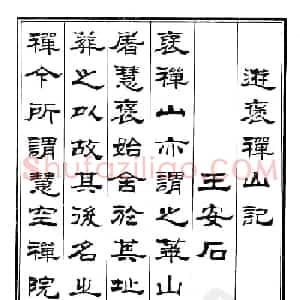 遊褒禪山記
王安石
褒禪山亦謂之華山
屠慧褒始舍於其址
葬之以故其後名之
禪今所謂慧空禪院
Shufaziliao.com